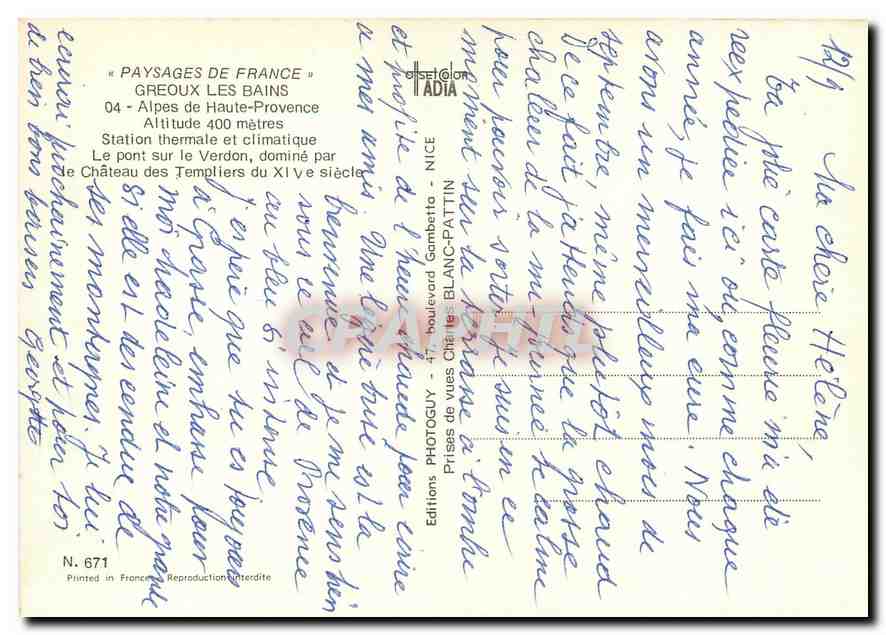 « PAYSAGES DE FRANCE »
GREOUX LES BAINS
04 - Alpes de Haute-Provence
Altitude 400 mètres
Station thermale et climatique
Le pont sur le Verdon, dominé par
le Château des Templiers du XIVe siècle
offset color
ADIA
Editions PHOTOGUY - 47, boulevard Gambetta - NICE
Prises de vues Charles BLANC-PATTIN
12/9
Ma chère Hélène,
Ta jolie carte fleurie m'a été
réexpédiée ici où, comme chaque
année, je fais ma cure. Nous
avons un merveilleux mois de
septembre, même plutôt chaud
De ce fait j'attends que la grosse
chaleur de la mi-journée se calme
pour pouvoir sortir. Je suis en ce
moment sur la terrasse à l'ombre
et profite de l'heure chaude pour écrire
à mes amis. Une légère brise est la
bienvenue et je me sens bien
sous ce ciel de Provence
au bleu si intense
J'espère que tu es toujours
à Grasse, embrasse pour
moi Madeleine et notre grande
si elle est descendue de
ses montagnes. Je lui
écrirai prochainement et pour toi
de bien bons baisers Georgette
N. 671
Printed in France - Reproduction interdite
CPAPHIL